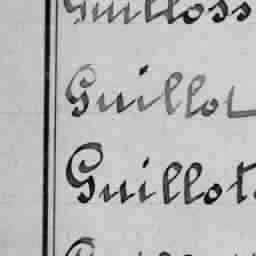 Guilloss
Guillot
Guillot